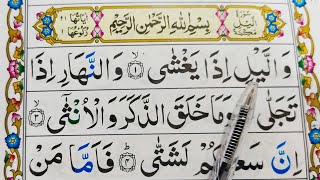 بِسْمِ اللهِ الرَّحْمٰنِ الرَّحِيْمِ
وَالَّيْلِ اِذَا يَغْشٰى ۙ﴿۱﴾ وَالنَّهَارِ اِذَا
تَجَلّٰى ۙ﴿۲﴾ وَمَا خَلَقَ الذَّكَرَ وَالْاُنْثٰٓى ۙ﴿۳﴾
اِنَّ سَعْيَكُمْ لَشَتّٰى ﴿۴﴾ فَاَمَّا مَنْ